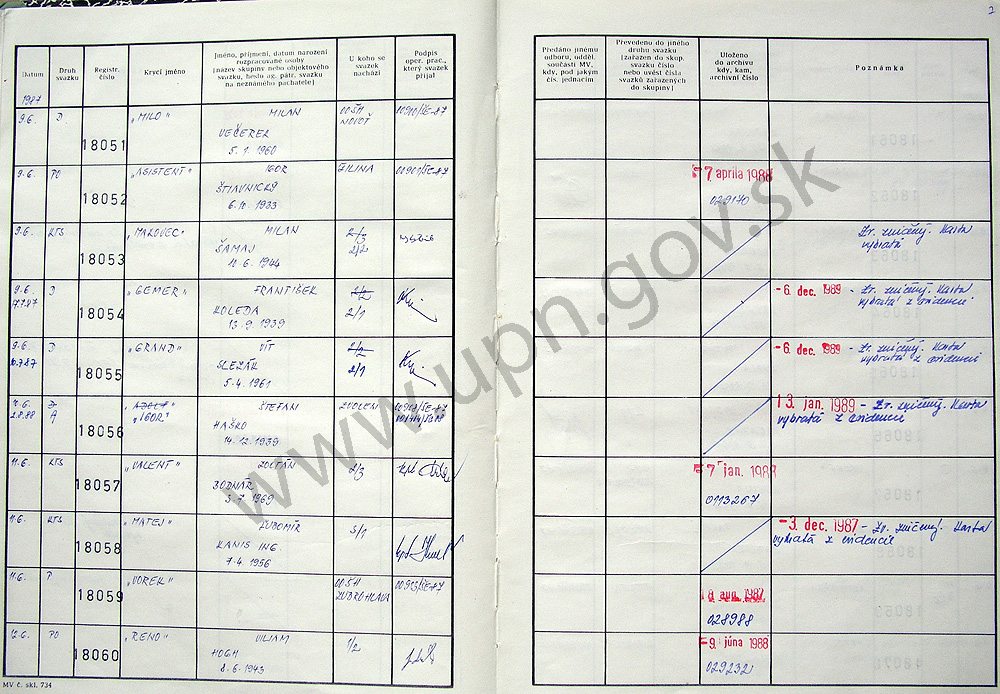 2
Datum
Druh svazku
Registr. číslo
Krycí jméno
Jméno, příjmení, datum narození rozpracované osoby
[název skupiny nebo objektového svazku, heslo ag. pátr. svazku na neznámého pachatele]
U koho se svazek nachází
Podpis oper. prac., který svazek přijal
Předáno jinému odboru, udděl. součásti MV, kdy, pod jakým čís. jednacím
Převedeno do jiného druhu svazku [zařazen do skup. svazku číslo nebo uvést čísla svazků zařazených do skupiny]
Uloženo do archivu kdy, kam, archivní číslo
Poznámka
1987
9.6. D 18051 „MILO" MILAN
VEČEREK
5. 1. 1960
9.6. PO 18052 „ASISTENT" IGOR ŽILINA
ŠTIAVNICKÝ
6. 10. 1933
7. apríla 1988
029170
9.6. KTS 18053 „MAKOVEC" MILAN 2/3
ŠAMAJ 2/2
10. 6. 1944
Zv. zničený. Karta
vybratá
9.6. D 18054 „GEMER" FRANTIŠEK 2/2
KOLEDA 2/1
13. 9. 1939
-6. dec. 1989 - Zv. zničený. Karta
vybratá z evidencií
9.6. D 18055 „GRAND" VÍT 2/2
SLEZÁK 2/1
5. 4. 1961
-6. dec. 1989 - Zv. zničený. Karta
vybratá z evidencií
2.8.88 A 18056 „IGOR" ŠTEFAN ZVOLEN
HAŠKO
14. 12. 1939
13. jan. 1989 - Zv. zničený. Karta
vybratá z evidencií
11.6. KTS 18057 „VALENT" ZOLTÁN 2/3
BODNÁR
3. 7. 1969
7. jan. 1988
0113267
11.6. KTS 18058 „MATEJ" ĽUBOMÍR 3/1
KANIS ING.
7. 4. 1956
-3. dec. 1987 - Zv. zničený. Karta
vybratá z evidencií
11.6. 18059 „VOREK"
ZUBROHLAVA
aug. 1987
028988
12.6. PO 18060 „RENO" VILIAM 1/2
HOGH
8. 6. 1943
-9. júna 1988
029232
MV č. skl. 734
www.upn.gov.sk